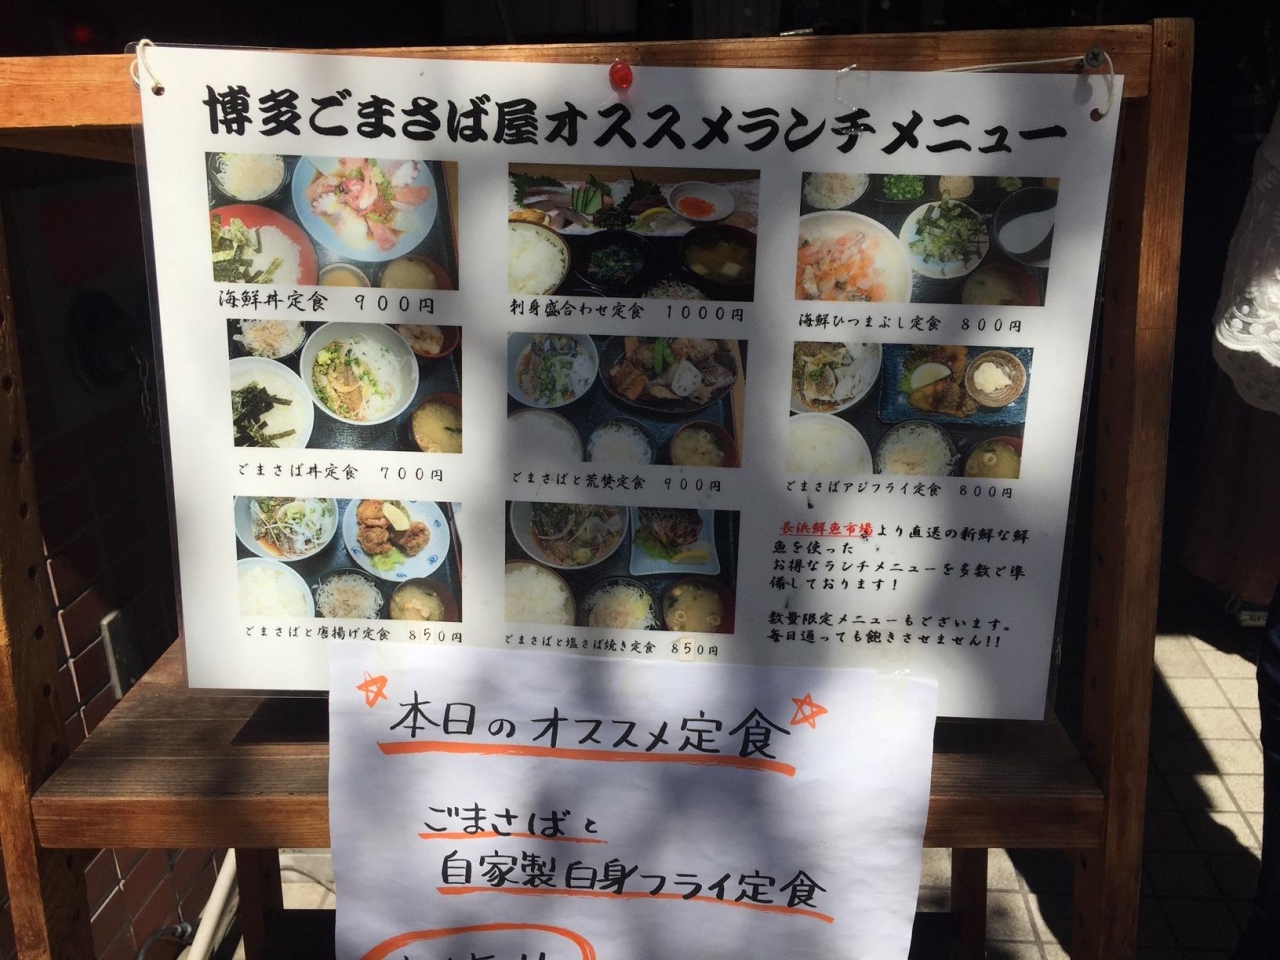 博多ごまさば屋オススメランチメニュー
海鮮丼定食 900円
刺身盛合わせ定食 1000円
海鮮ひつまぶし定食 800円
ごまさば丼定食 700円
ごまさばと荒焚定食 900円
ごまさばアジフライ定食 800円
ごまさばと唐揚げ定食 850円
ごまさばと塩さば焼き定食 850円
長浜鮮魚市場より直送の新鮮な鮮
魚を使った
お得なランチメニューを多数ご準
備しております!
数量限定メニューもございます。
毎日通っても飽きさせません!!
本日のオススメ定食
ごまさばと
自家製白身フライ定食